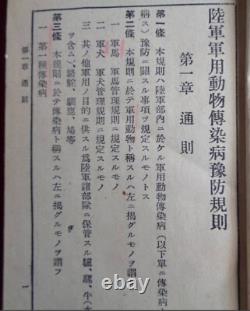 陸軍軍用動物傳染病豫防規則
第一章 通則
第一條 本規則ハ陸軍部內ニ於ケル軍用動物傳染病(以下單ニ傳染病
稱ス)豫防ニ關スル事項ヲ規定スルモノトス
第二條 本規則ニ於テ軍用動物ト稱スルハ左ニ揭グルモノヲ謂フ
一 軍馬 軍馬管理規則ニ規定スルモノ
二 軍犬 軍犬管理規則ニ規定スルモノ
三 其ノ他軍用ノ目的ニ供スル爲陸軍諸部隊ニ保管スル驢、騾、牛(水
牛ヲ含ム)、駱駝、馴鹿、鳩等
第三條 本規則ニ於テ傳染病ト稱スルハ左ニ揭グルモノヲ謂フ
一 第一種傳染病
第一章 通則
一